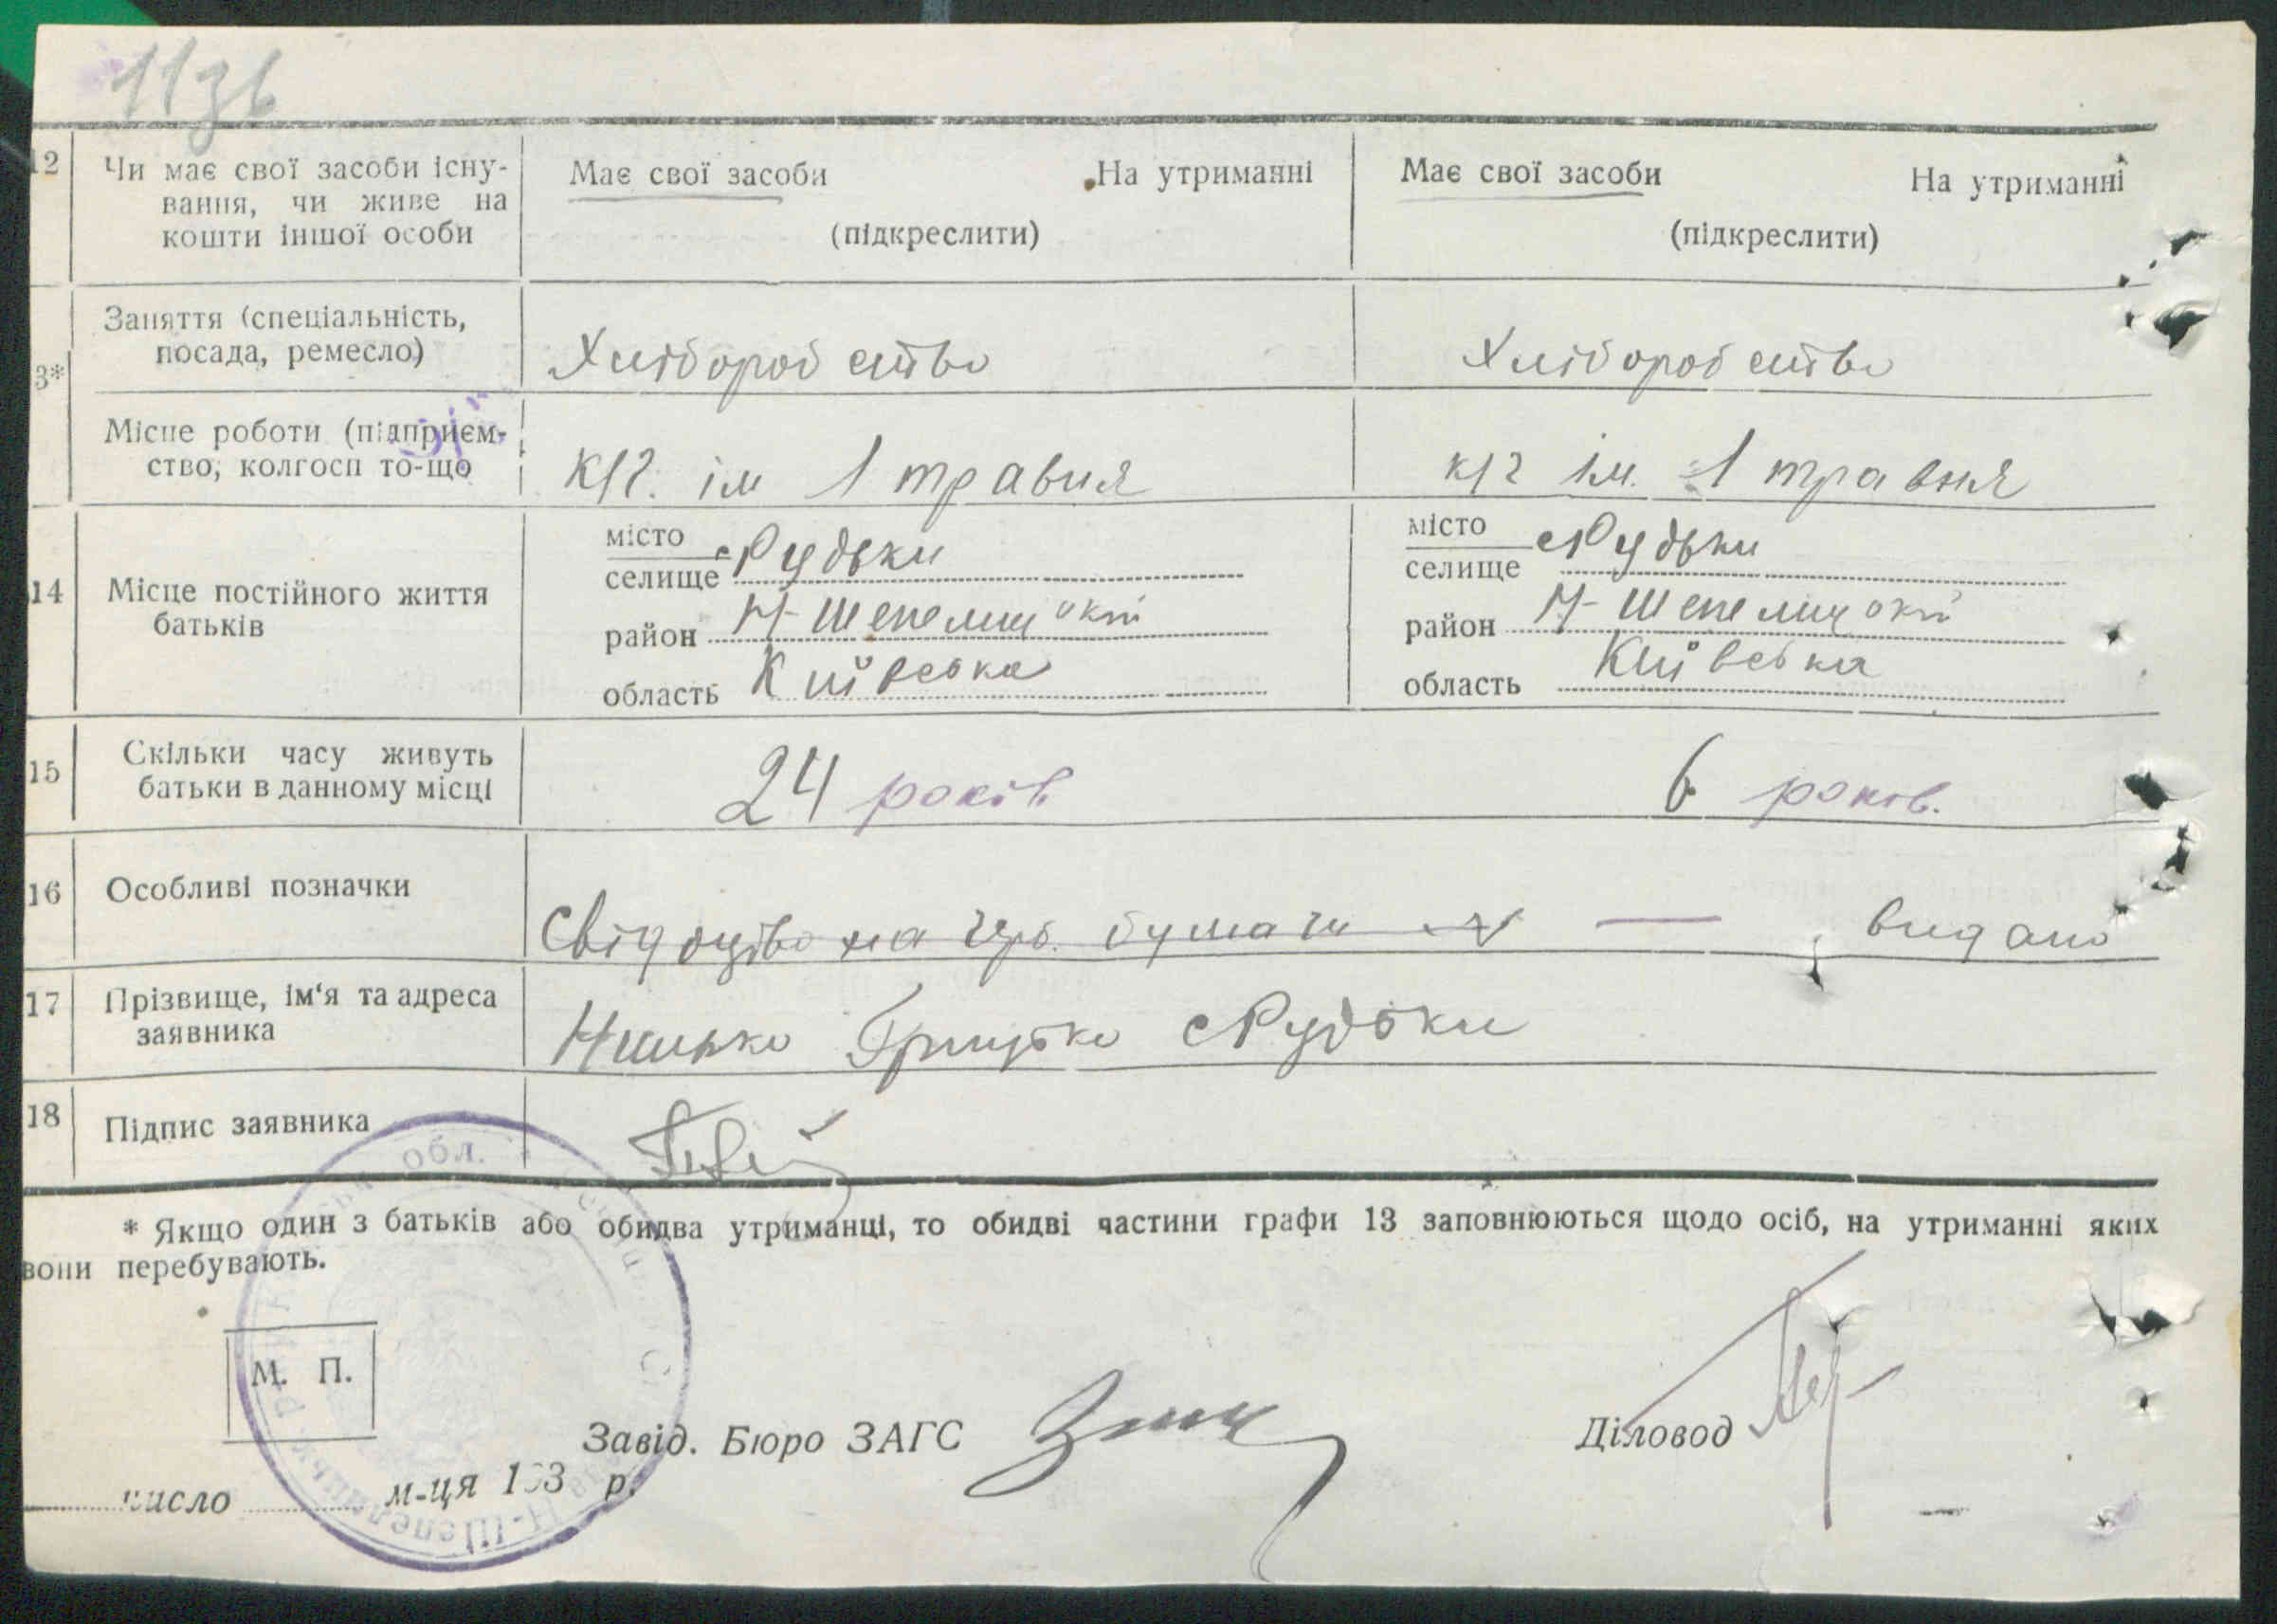 11зв
12 Чи має свої засоби існу-
вання, чи живе на
кошти іншої особи
Має свої засоби На утриманні
(підкреслити)
Має свої засоби На утриманні
(підкреслити)
3*
Заняття (спеціальність,
посада, ремесло)
Хліборобство
Хліборобство
Місце роботи (підприєм-
ство, колгосп то-що
к/г. ім 1 травня
к/г ім. 1 травня
14 Місце постійного життя
батьків
місто
селище с Рудьки
район Н-Шепелицькій
область Київська
місто
селище с Рудьки
район Н-Шепелицькій
область Київська
15 Скільки часу живуть
батьки в данному місці
24 років
6 років.
16 Особливі позначки
Свідоцтво на герб. бумаги № — видано
17 Прізвище, ім'я та адреса
заявника
Грицько с Рудьки
18 Підпис заявника
* Якщо один з батьків або обидва утриманці, то обидві частини графи 13 заповнюються щодо осіб, на утриманні яких
вони перебувають.
М. П.
Завід. Бюро ЗАГС
Діловод
число м-ця 193 р.
обл.
Н-Шепелицьк